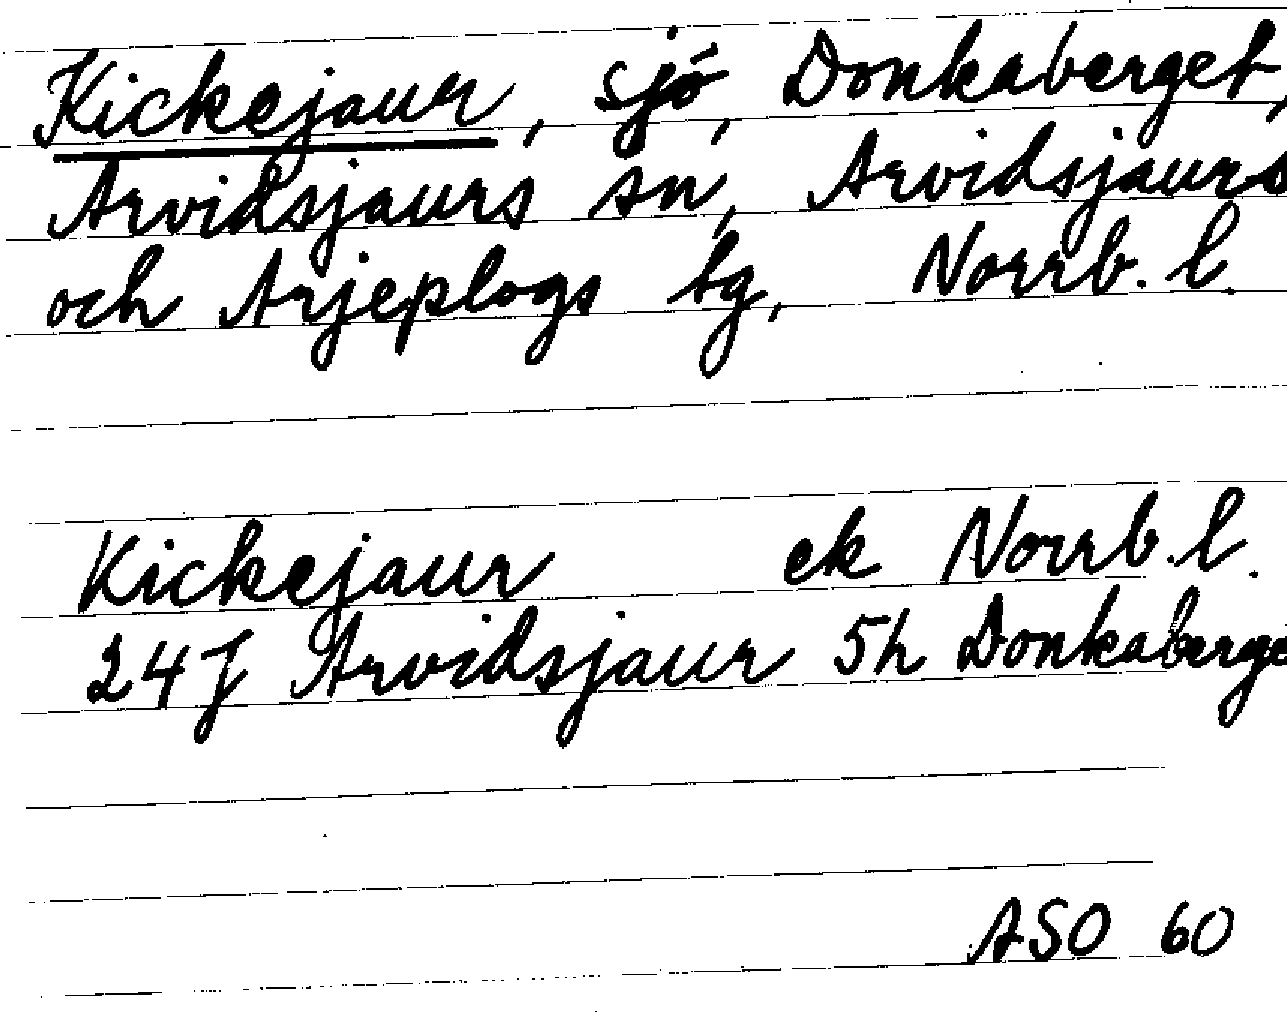 Kickejaur, sjö, Donkaberget,
Arvidsjaurs sn, Arvidsjaurs
och Arjeplogs tg, Norrb. l.
Kickejaur ek Norrb. l.
24J Arvidsjaur 5h Donkaberge
ASO 60